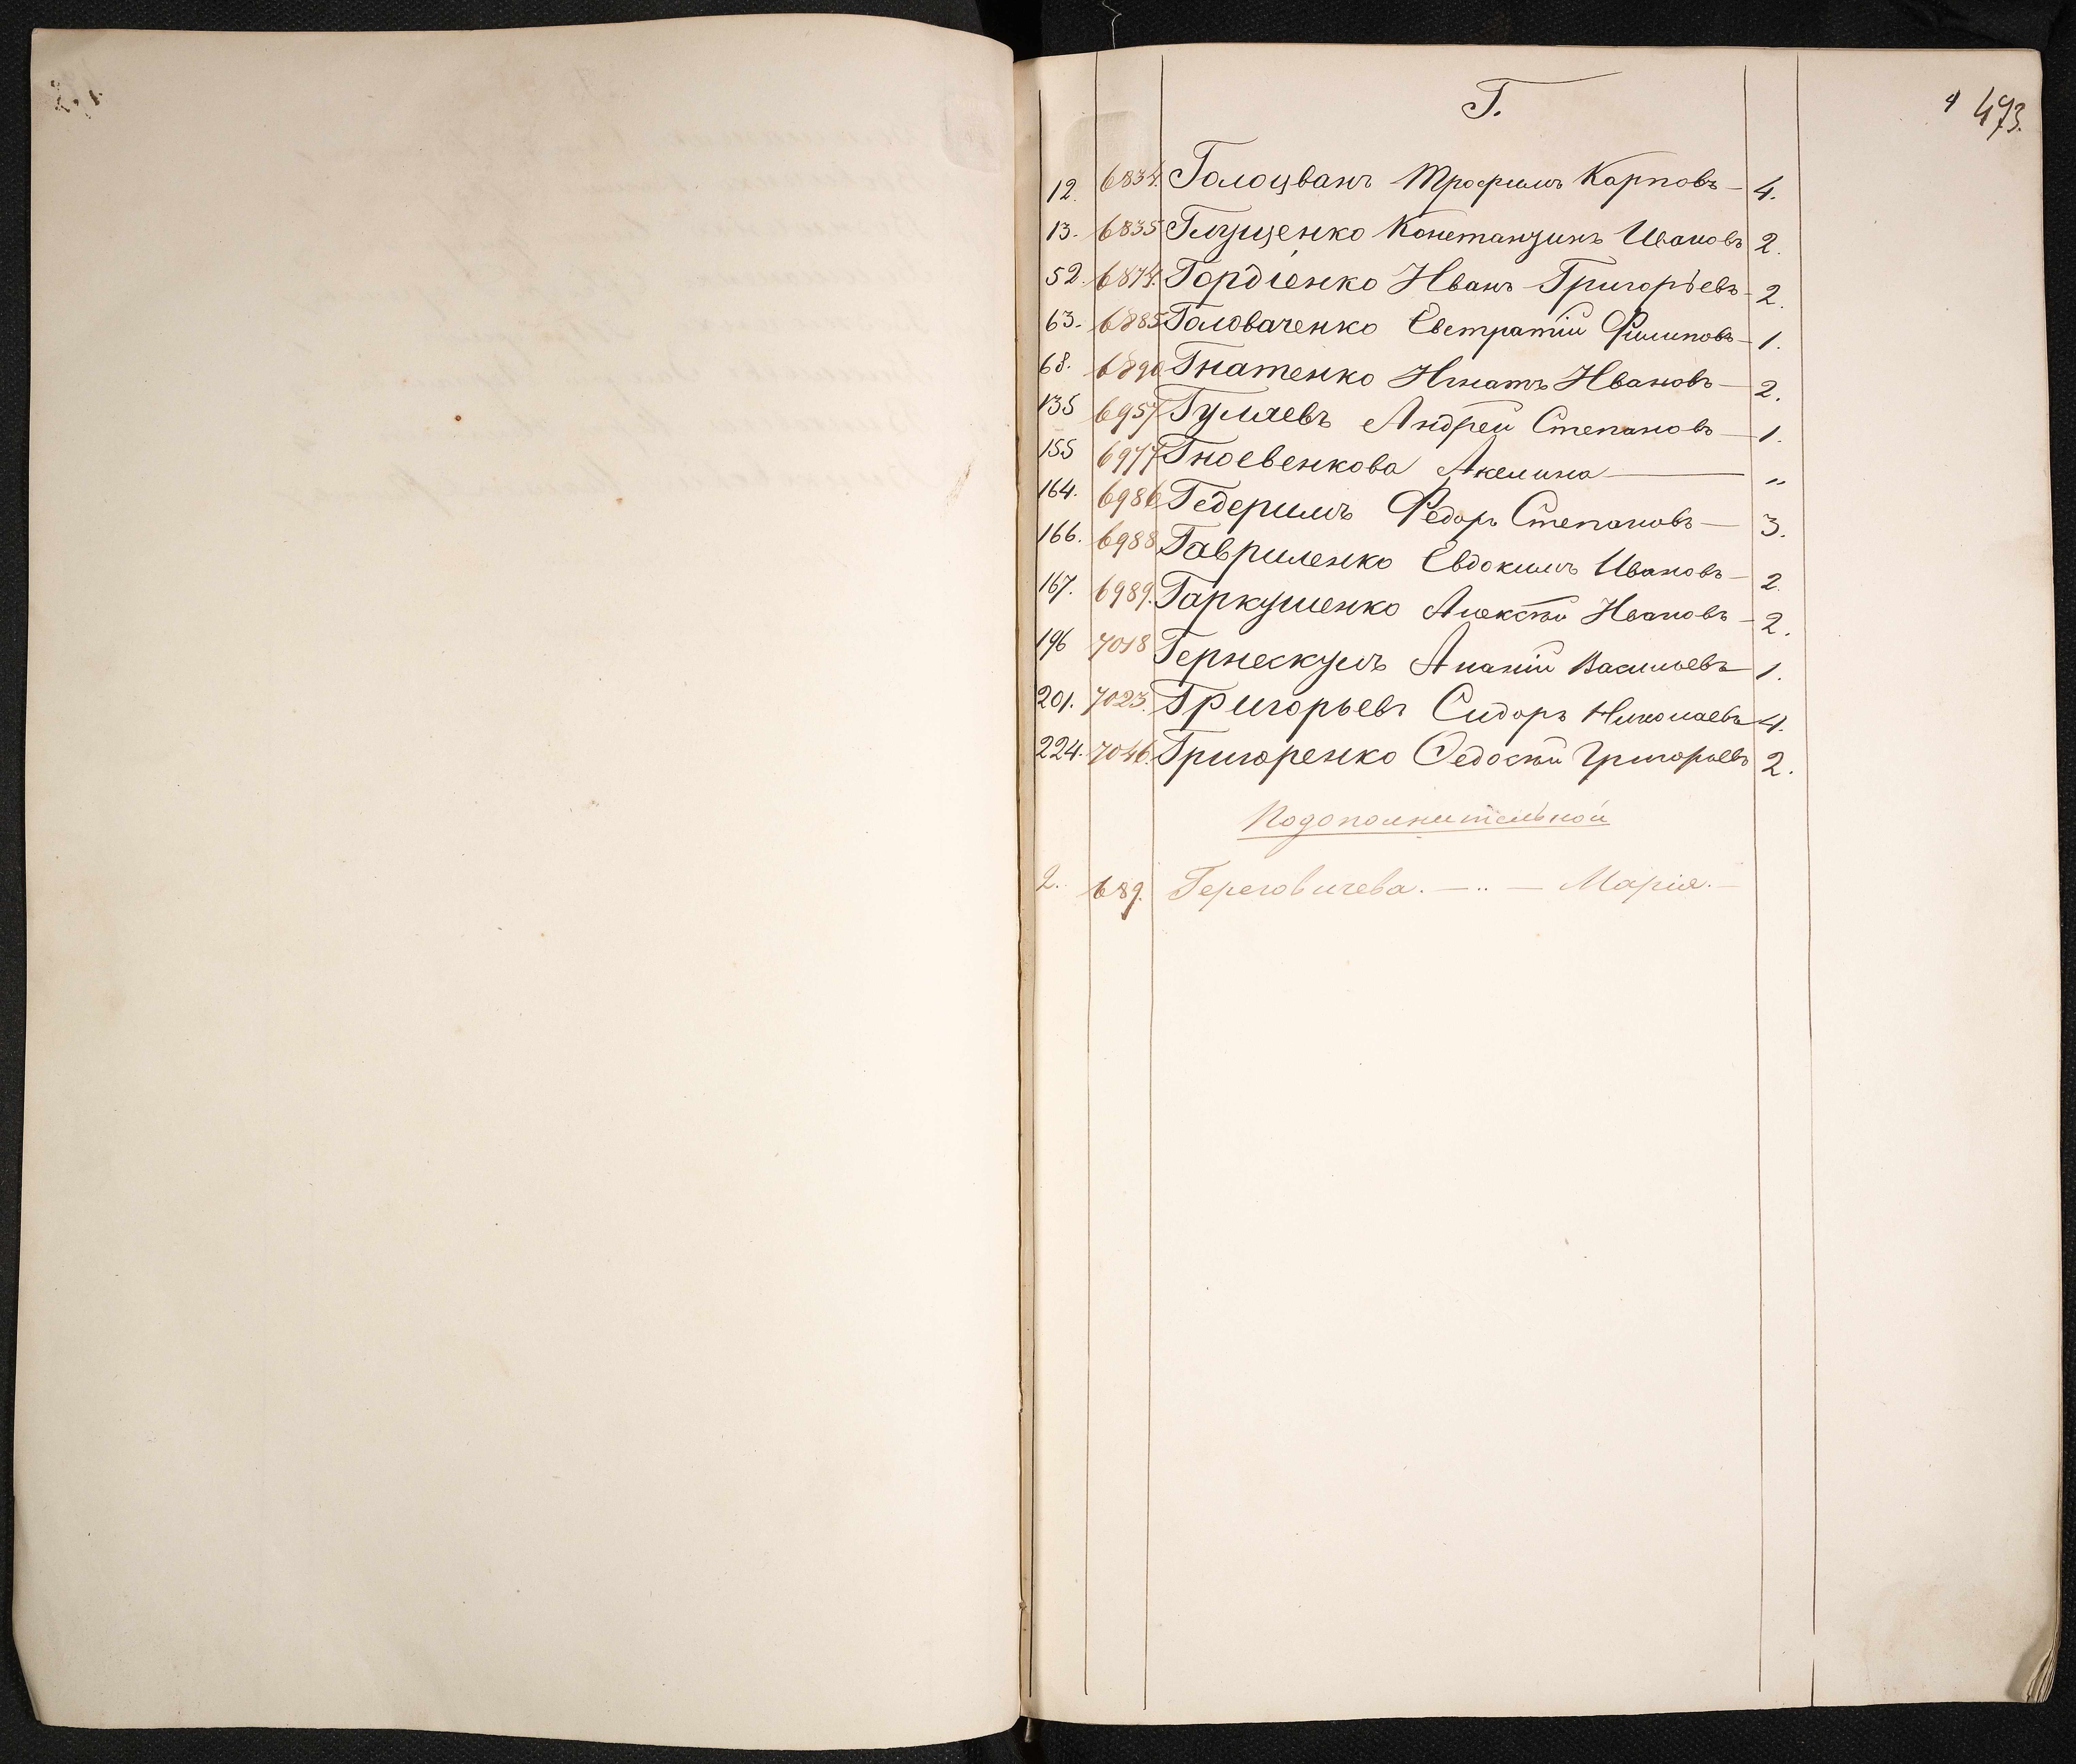 Г.
4 473.
12. 6834. Голоцванъ Трофимъ Карповъ — 4.
13. 6835 Глущенко Констанзинъ Ивановъ 2.
52. 6874. Гордіенко Иванъ Григорьевъ — 2.
63. 6885 Головаченко Евстратій Филиповъ — 1.
68. 6890 Гнатенко Игнатъ Ивановъ — 2.
135 6957 Гуляевъ Андрей Степановъ — 1.
155 6977 Гноевенкова Акелина — „
164. 6986 Гедеримъ Федоръ Степановъ — 3.
166. 6988 Гавриленко Евдокимъ Ивановъ — 2.
167. 6989. Гаркушенко Алексѣй Ивановъ — 2.
196 7018 Гернескулъ Ананій Васильевъ 1.
201. 7023. Григорьевъ Сидоръ Николаевъ 4.
224. 7046. Григоренко Ѳедосѣй Григорьевъ 2.
Подополнительной
2. 689. Гереговичева. — .. — Марія. —